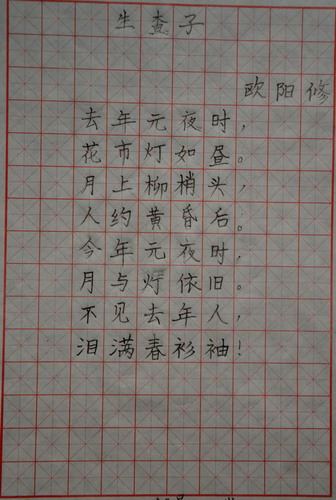 生查子
欧阳修
去年元夜时，
花市灯如昼。
月上柳梢头，
人约黄昏后。
今年元夜时，
月与灯依旧。
不见去年人，
泪满春衫袖！